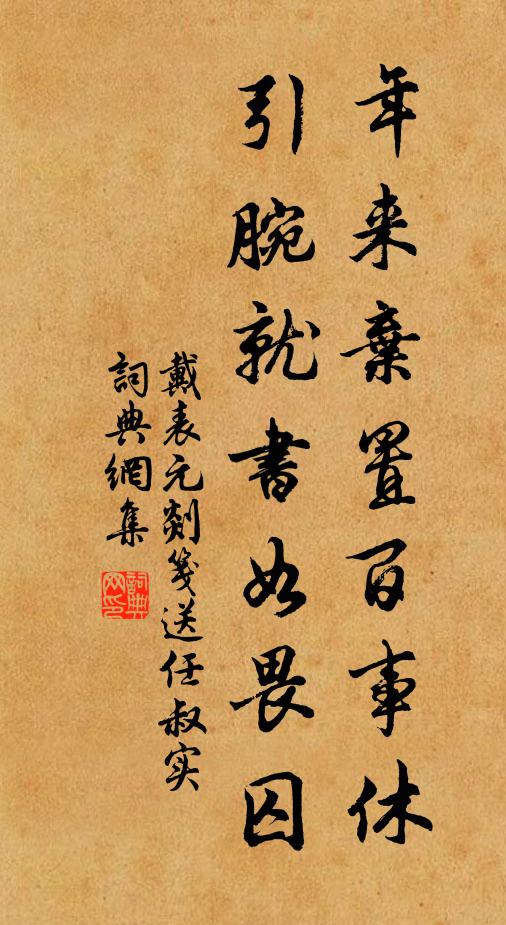 年来棄置百事休
引腕就書如畏囚
戴表元剡箋送任叔实
詞典網集
詞典网印